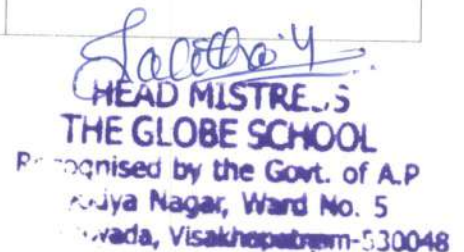 Lalitha Y
HEAD MISTRE..S
THE GLOBE SCHOOL
Recognised by the Govt. of A.P
Nagar, Ward No. 5
Visakhapatnam-530048